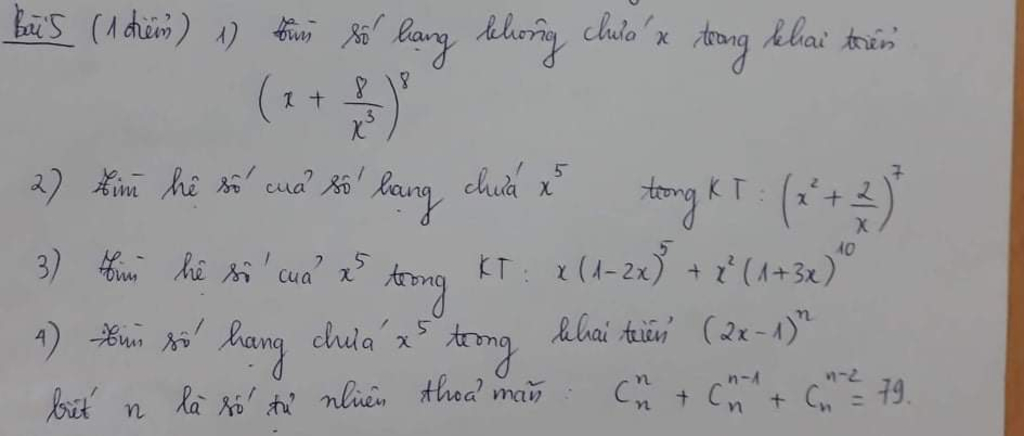 Bài 5 (1 điểm) 1) Tìm số hạng không chứa x trong khai triển
(x + 8/x³)⁸
2) Tìm hệ số của số hạng chứa x⁵ trong KT : (x² + 2/x)⁷
3) Tìm hệ số của x⁵ trong KT : x(1-2x)⁵ + x²(1+3x)¹⁰
4) Tìm số hạng chứa x⁵ trong khai triển (2x-1)ⁿ
biết n là số tự nhiên thoả mãn : Cₙⁿ + Cₙⁿ⁻¹ + Cₙⁿ⁻² = 79.